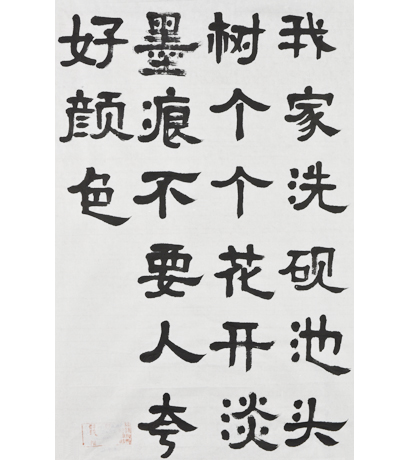 我家洗砚池头
树个个花开淡
墨痕不要人夸
好颜色